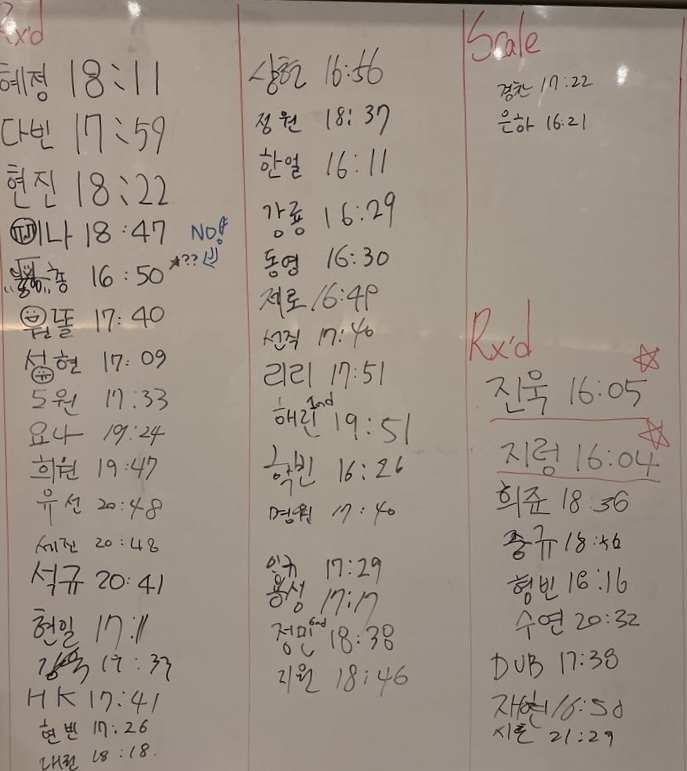 Rx'd
혜정 18:11
다빈 17:59
현진 18:22
미나 18:47 NO!
16:50 *??
17:40
성현 17:09
5원 17:33
요나 19:24
희원 19:47
유선 20:48
세진 20:48
석규 20:41
현일 17:11
17:37
HK 17:41
현빈 17:26
18:18.
상헌 16:56
정원 18:37
한얼 16:11
강룡 16:29
동영 16:30
제로 16:49
선직 17:40
리리 17:51
해린 2nd 19:51
학빈 16:26
명원 17:40
인규 17:29
용성 17:17
정민 18:38
지원 18:46
Scale
경찬 17:22
은하 16:21
Rx'd
진욱 16:05
지령 16:04
희준 18:36
18:50
형빈 16:16
수연 20:32
DUB 17:38
재현 16:50
21:29